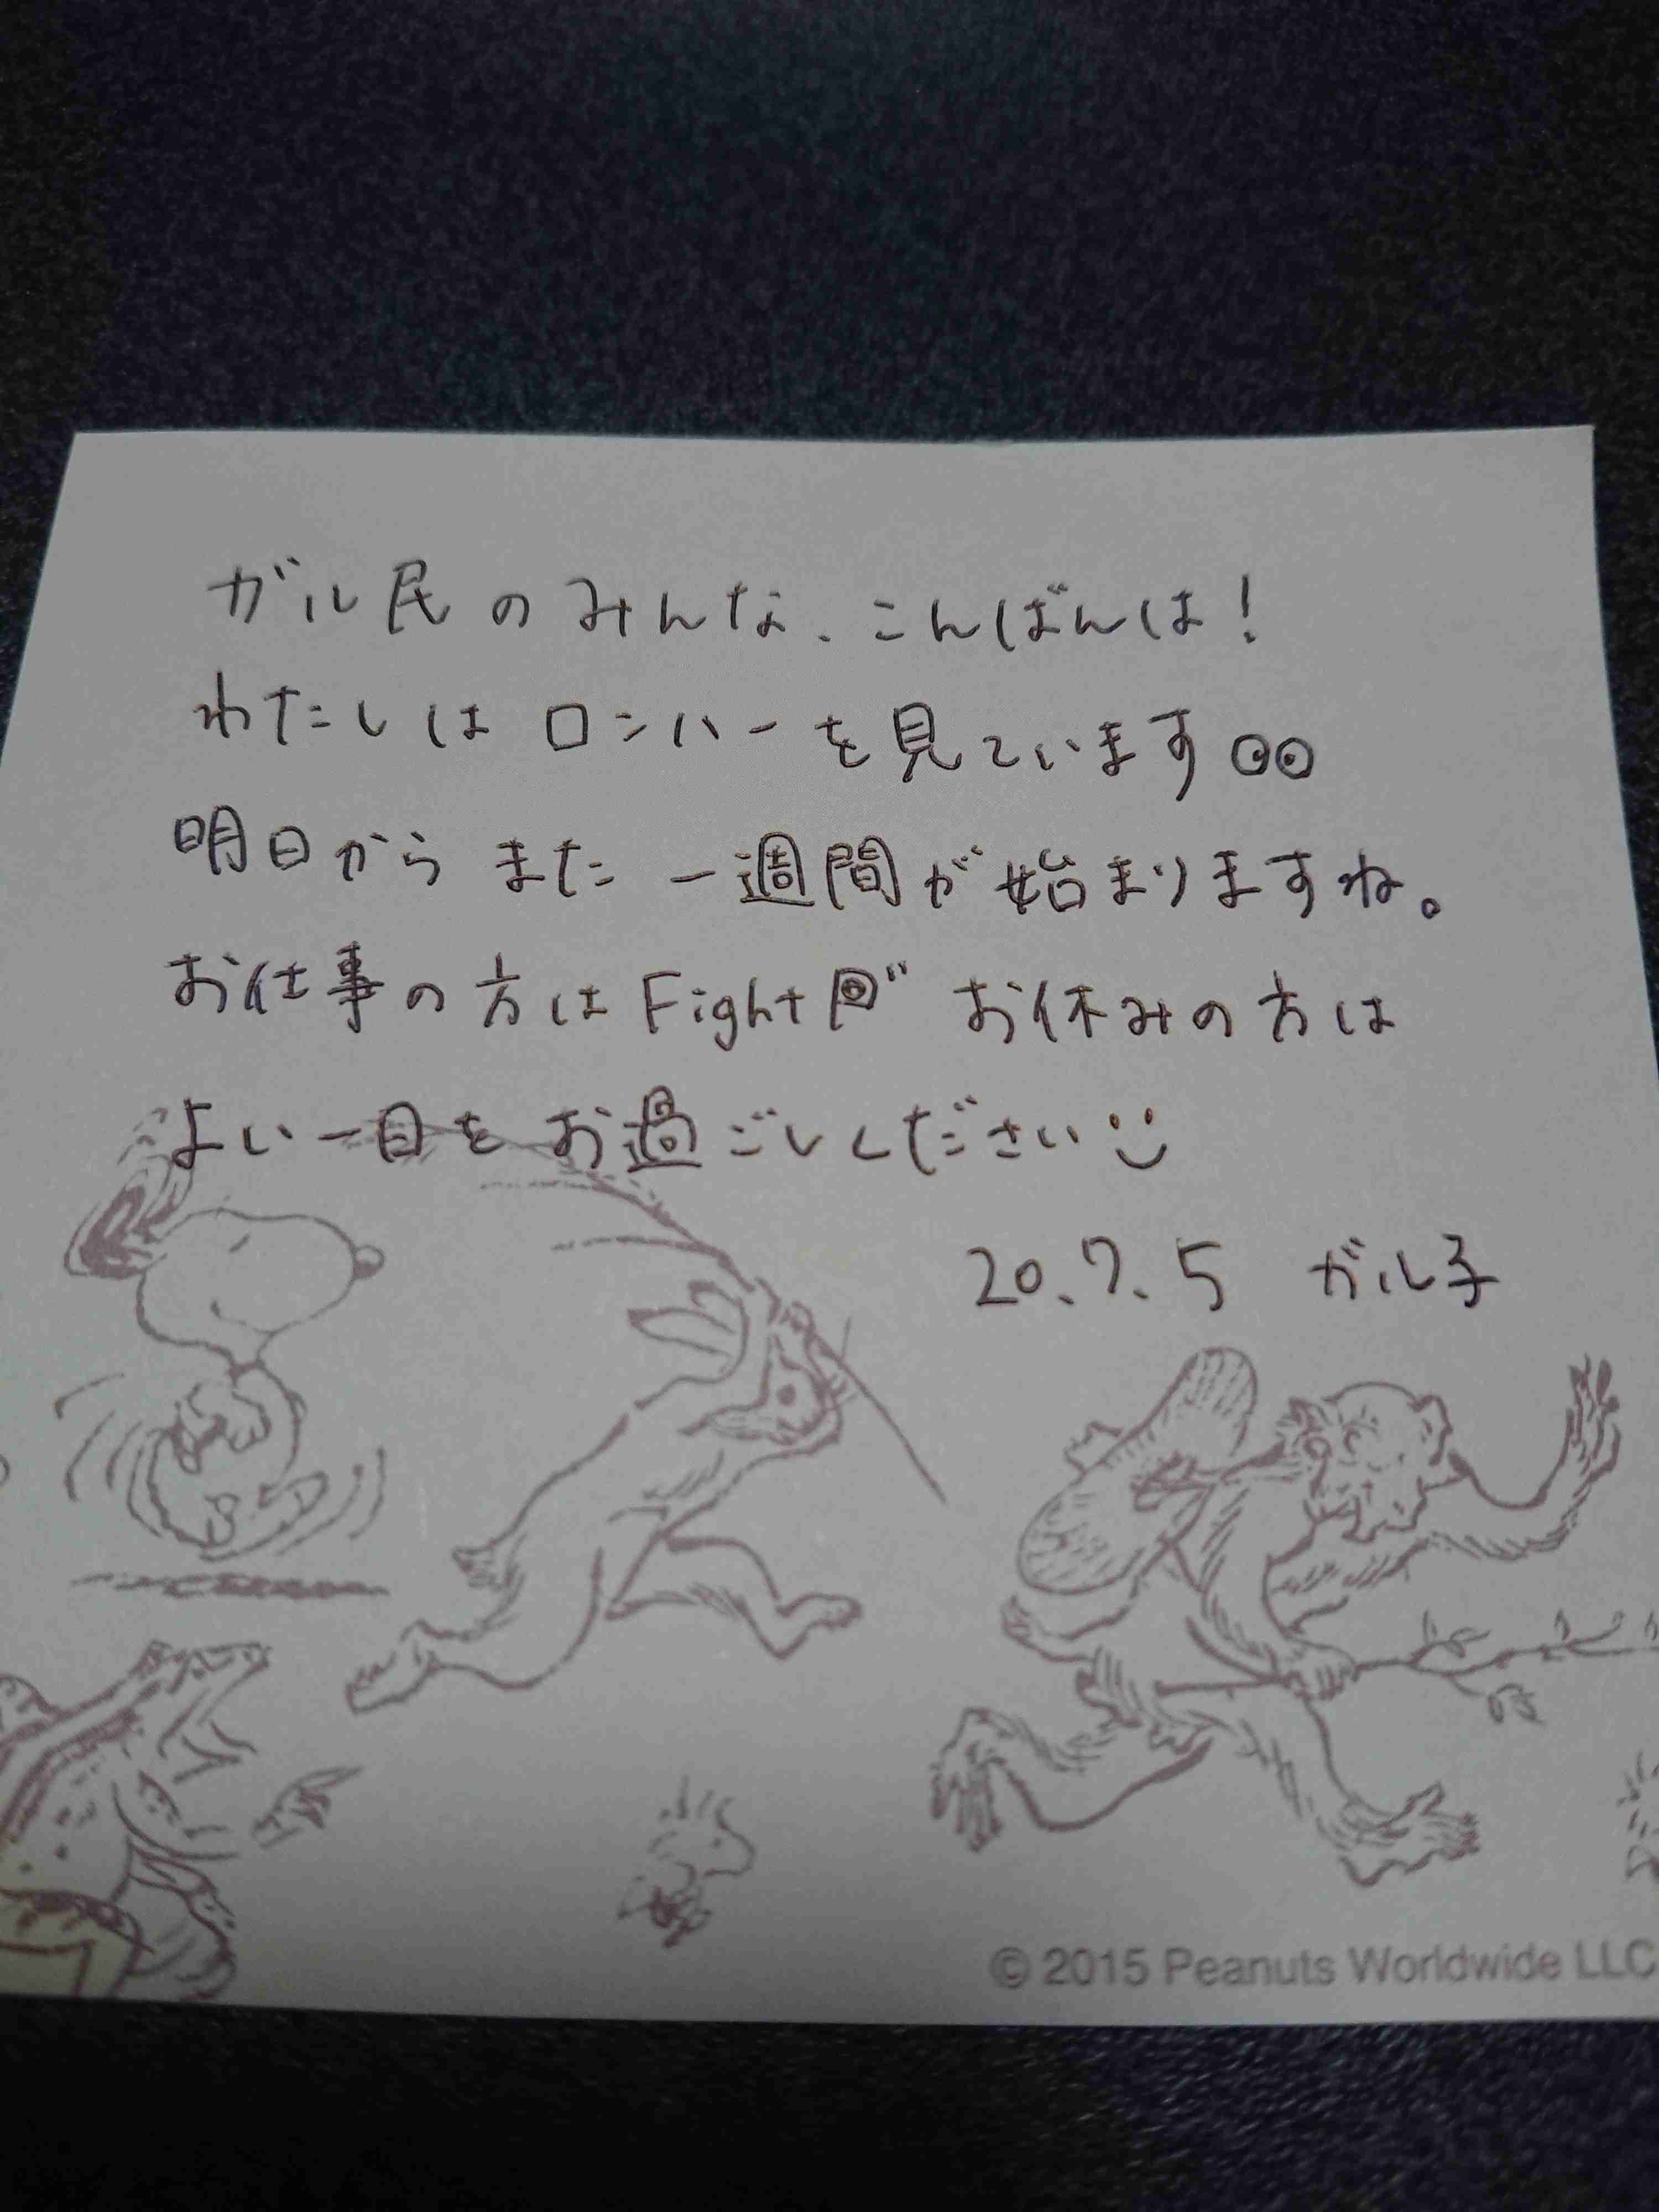 ガル民のみんな、こんばんは!
わたしはロンハーを見ています
明日からまた一週間が始まりますね。
お仕事の方はFight お休みの方は
よい一日をお過ごしください
20.7.5 ガル子
© 2015 Peanuts Worldwide LLC